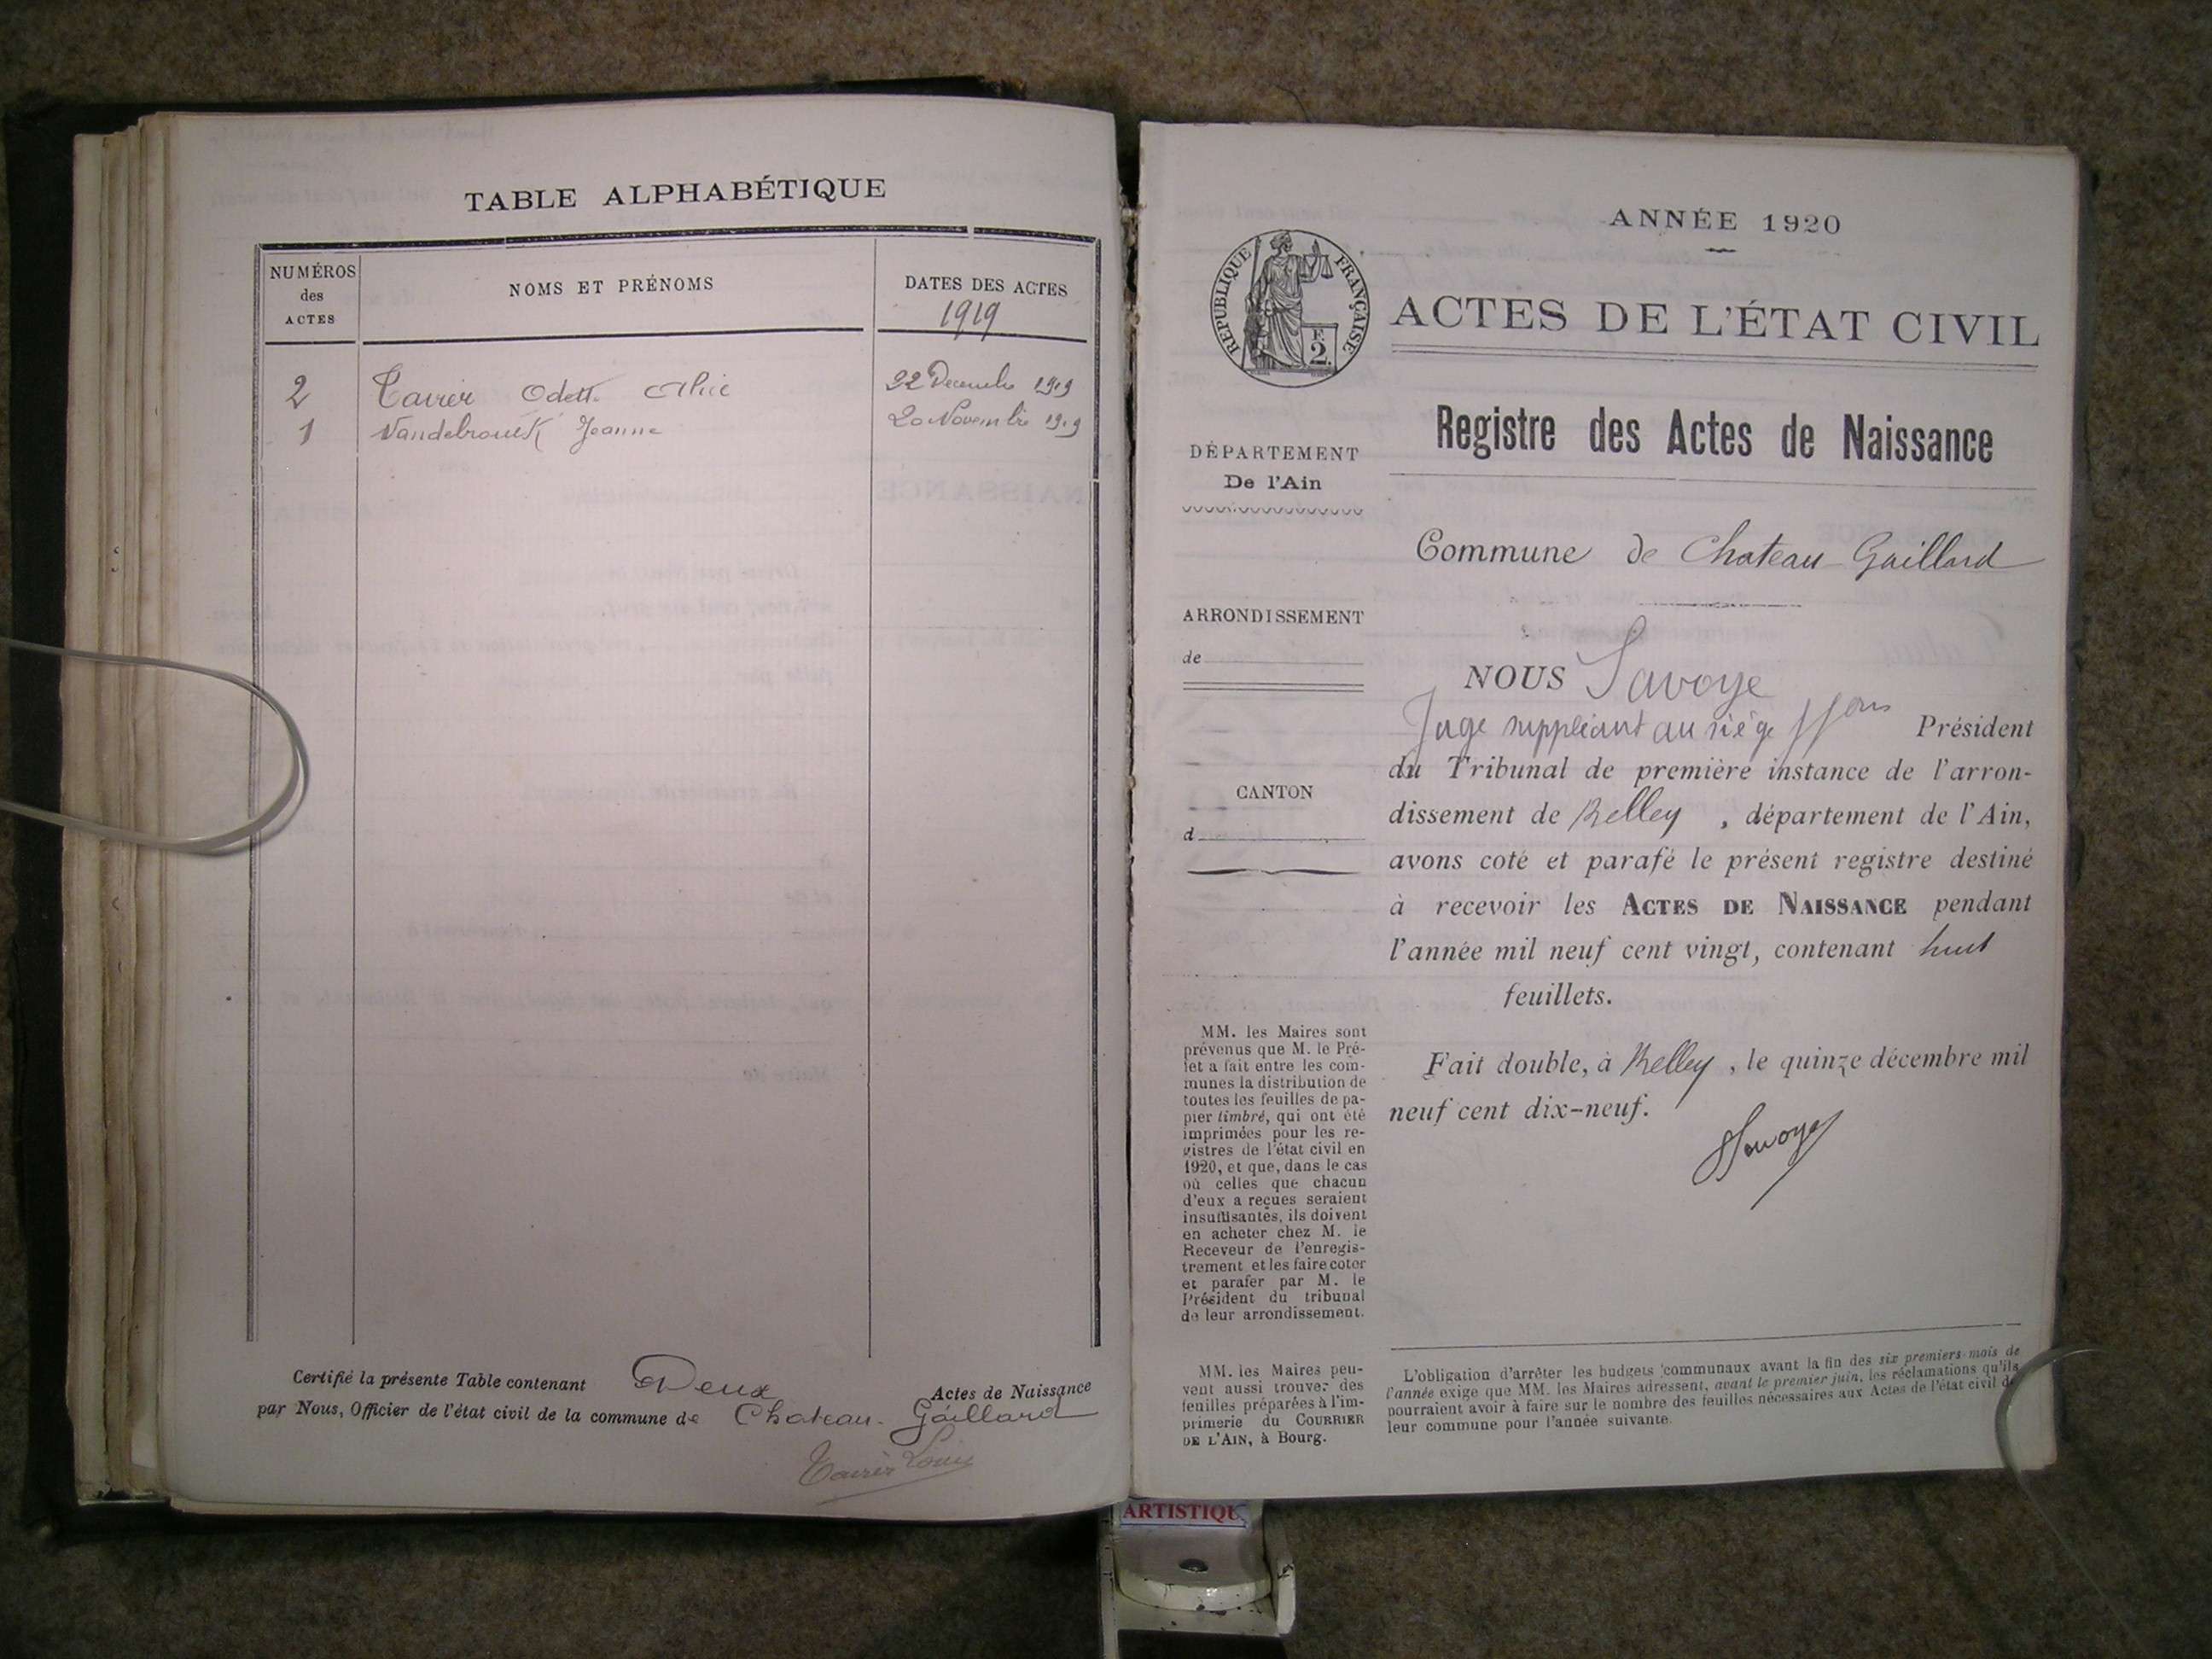 TABLE ALPHABÉTIQUE
NUMÉROS
des
ACTES
NOMS ET PRÉNOMS
DATES DES ACTES
1919
2 Tavier Odette Alice 22 Decembre 1919
1 Vandebrouck Jeanne 20 Novembre 1919
Certifié la présente Table contenant Deux Actes de Naissance
par Nous, Officier de l'état civil de la commune de Chateau-Gaillard
Tavier Louis
ANNÉE 1920
RÉPUBLIQUE FRANÇAISE
F.
2.
ACTES DE L'ÉTAT CIVIL
Registre des Actes de Naissance
DÉPARTEMENT
De l'Ain
Commune de Chateau-Gaillard
ARRONDISSEMENT
de
CANTON
d
NOUS Savoye
Juge suppléant au siège Président
du Tribunal de première instance de l'arron-
dissement de Belley, département de l'Ain,
avons coté et parafé le présent registre destiné
à recevoir les ACTES DE NAISSANCE pendant
l'année mil neuf cent vingt, contenant huit
feuillets.
Fait double, à Belley, le quinze décembre mil
neuf cent dix-neuf.
Savoye
MM. les Maires sont
prévenus que M. le Pré-
fet a fait entre les com-
munes la distribution de
toutes les feuilles de pa-
pier timbré, qui ont été
imprimées pour les re-
gistres de l'état civil en
1920, et que, dans le cas
où celles que chacun
d'eux a reçues seraient
insuffisantes, ils doivent
en acheter chez M. le
Receveur de l'enregis-
trement et les faire coter
et parafer par M. le
Président du tribunal
de leur arrondissement.
MM. les Maires peu-
vent aussi trouver des
feuilles préparées à l'im-
primerie du COURRIER
DE L'AIN, à Bourg.
L'obligation d'arrêter les budgets communaux avant la fin des six premiers mois de
l'année exige que MM. les Maires adressent, avant le premier juin, les réclamations qu'ils
pourraient avoir à faire sur le nombre des feuilles nécessaires aux Actes de l'état civil de
leur commune pour l'année suivante.
ARTISTIQU